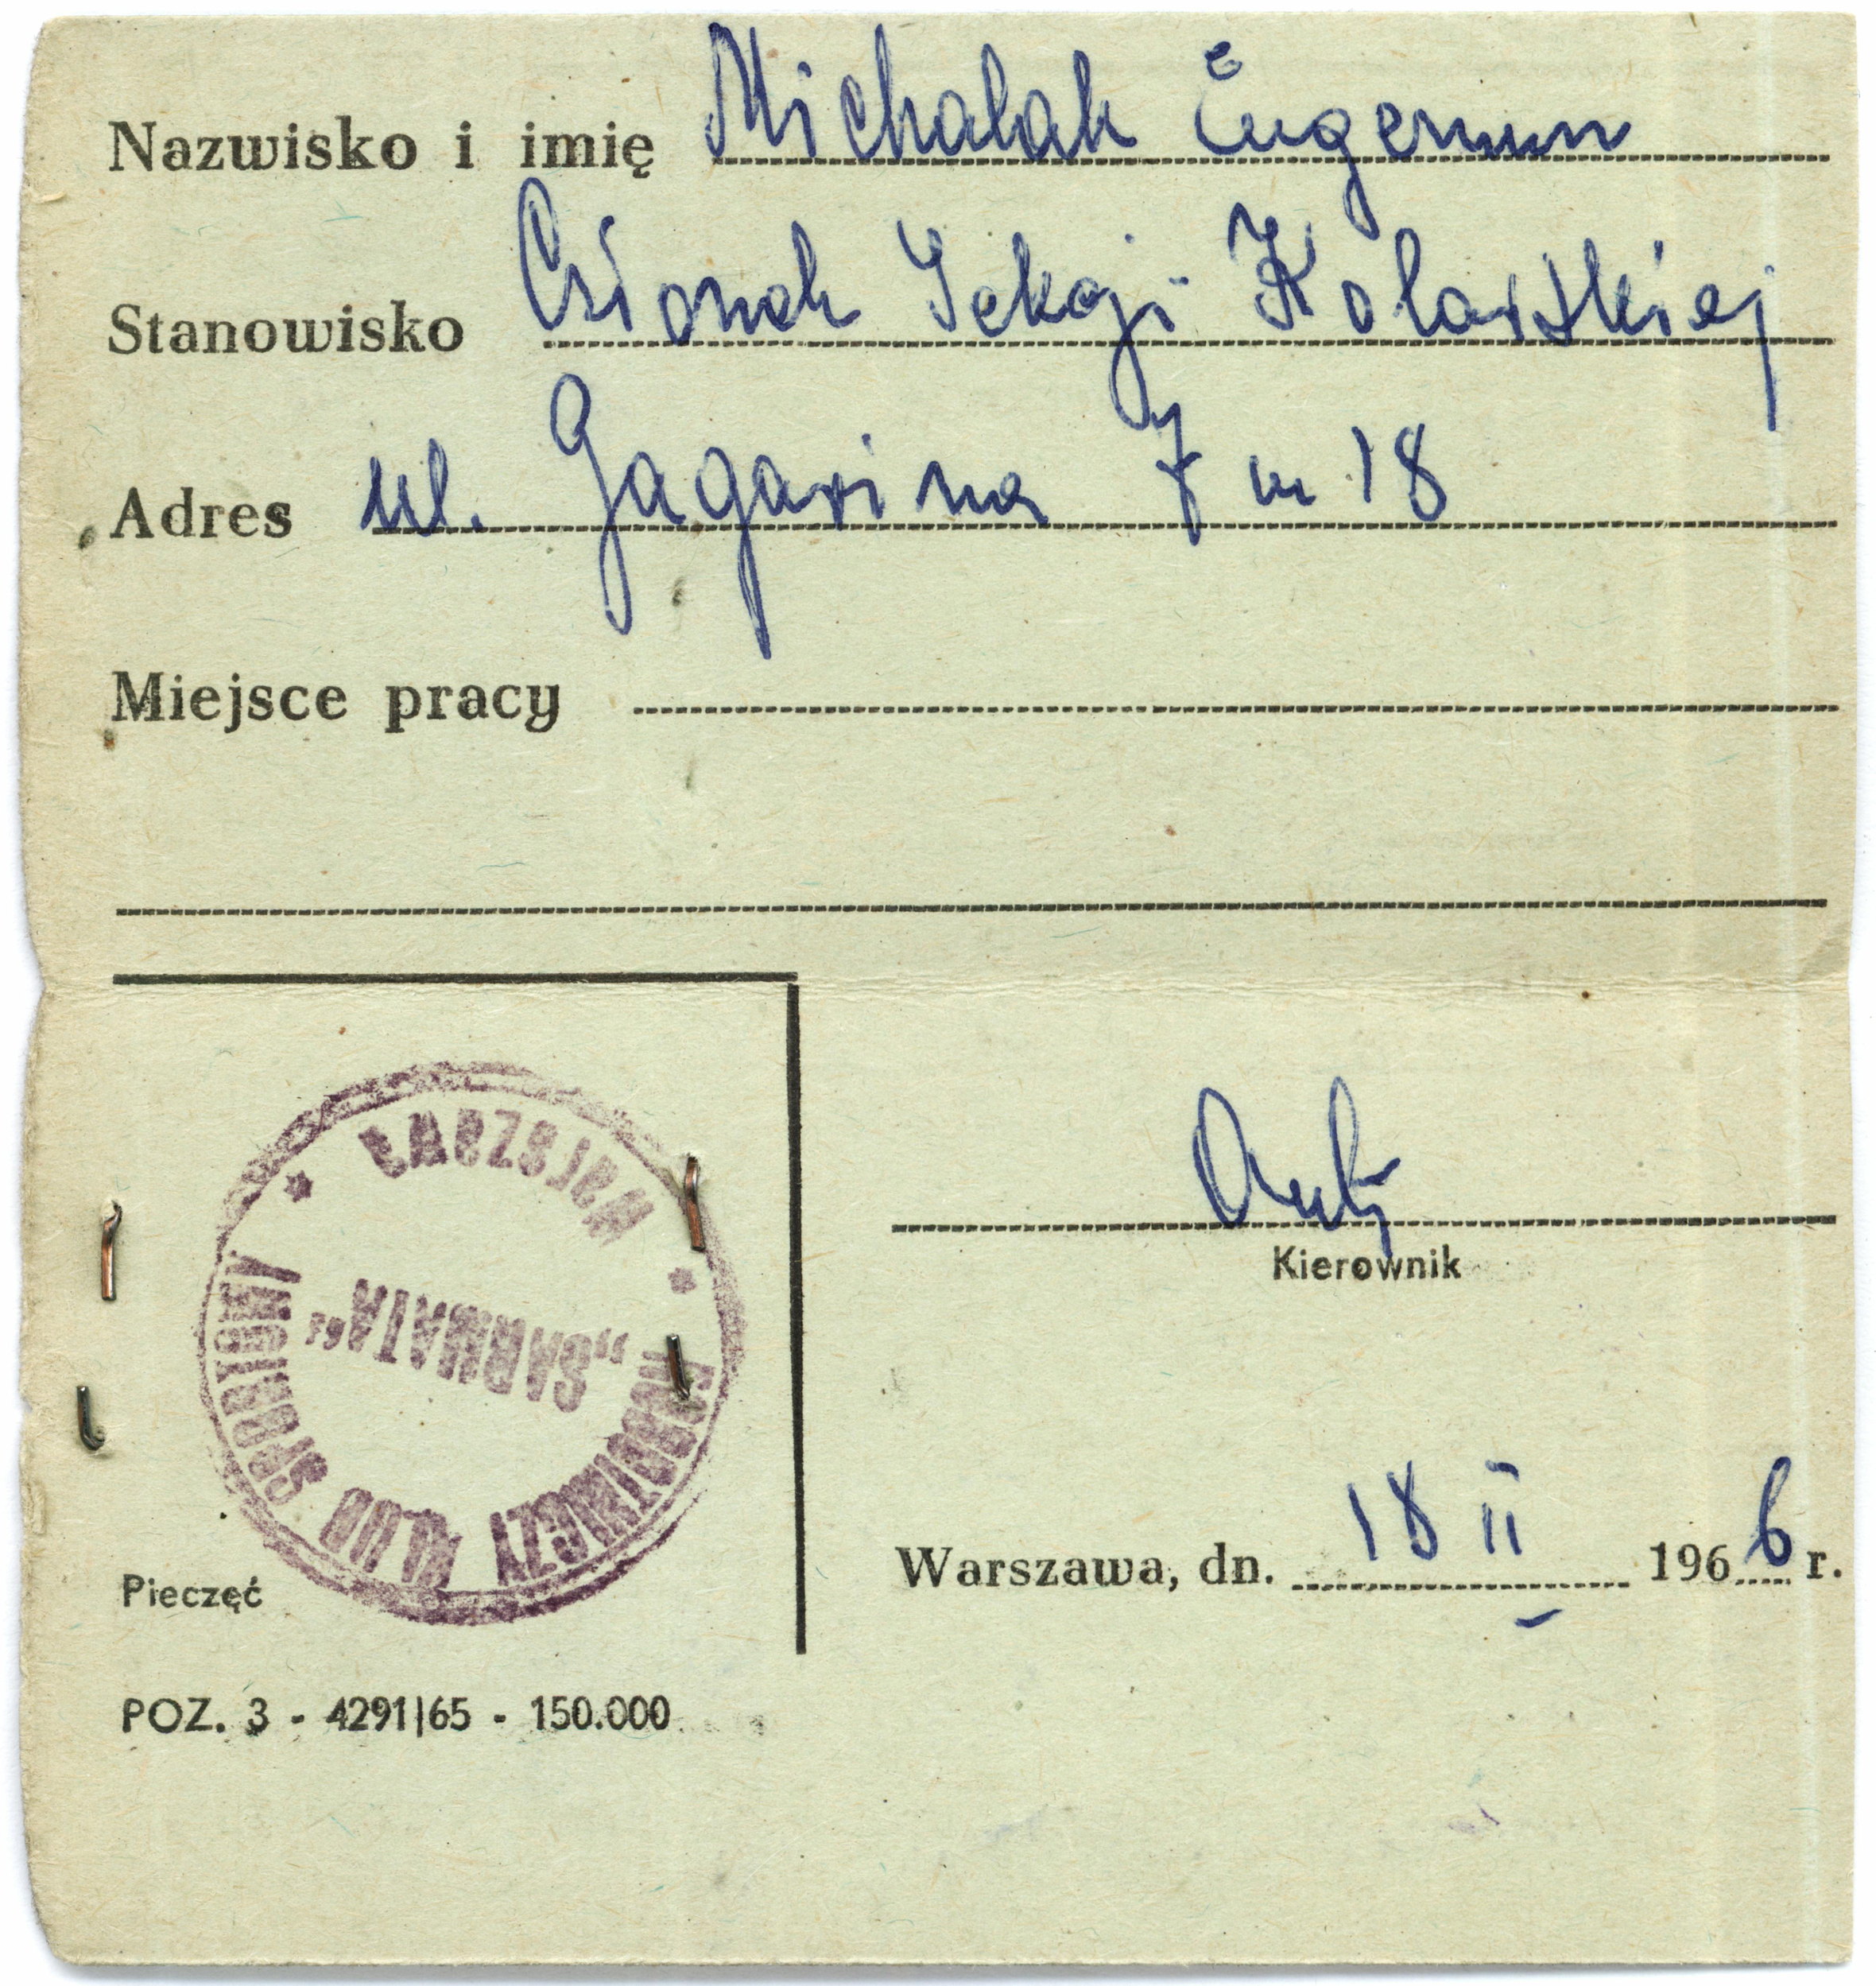 Nazwisko i imię Michalak Eugeniusz
Stanowisko Członek Sekcji Kolarskiej
Adres ul. Gagarina 7 m 18
Miejsce pracy
ROBOTNICZY KLUB SPORTOWY
„SARMATA”
Warszawa
Kierownik
Warszawa, dn. 18 II 1966 r.
Pieczęć
POZ. 3 - 4291|65 - 150.000